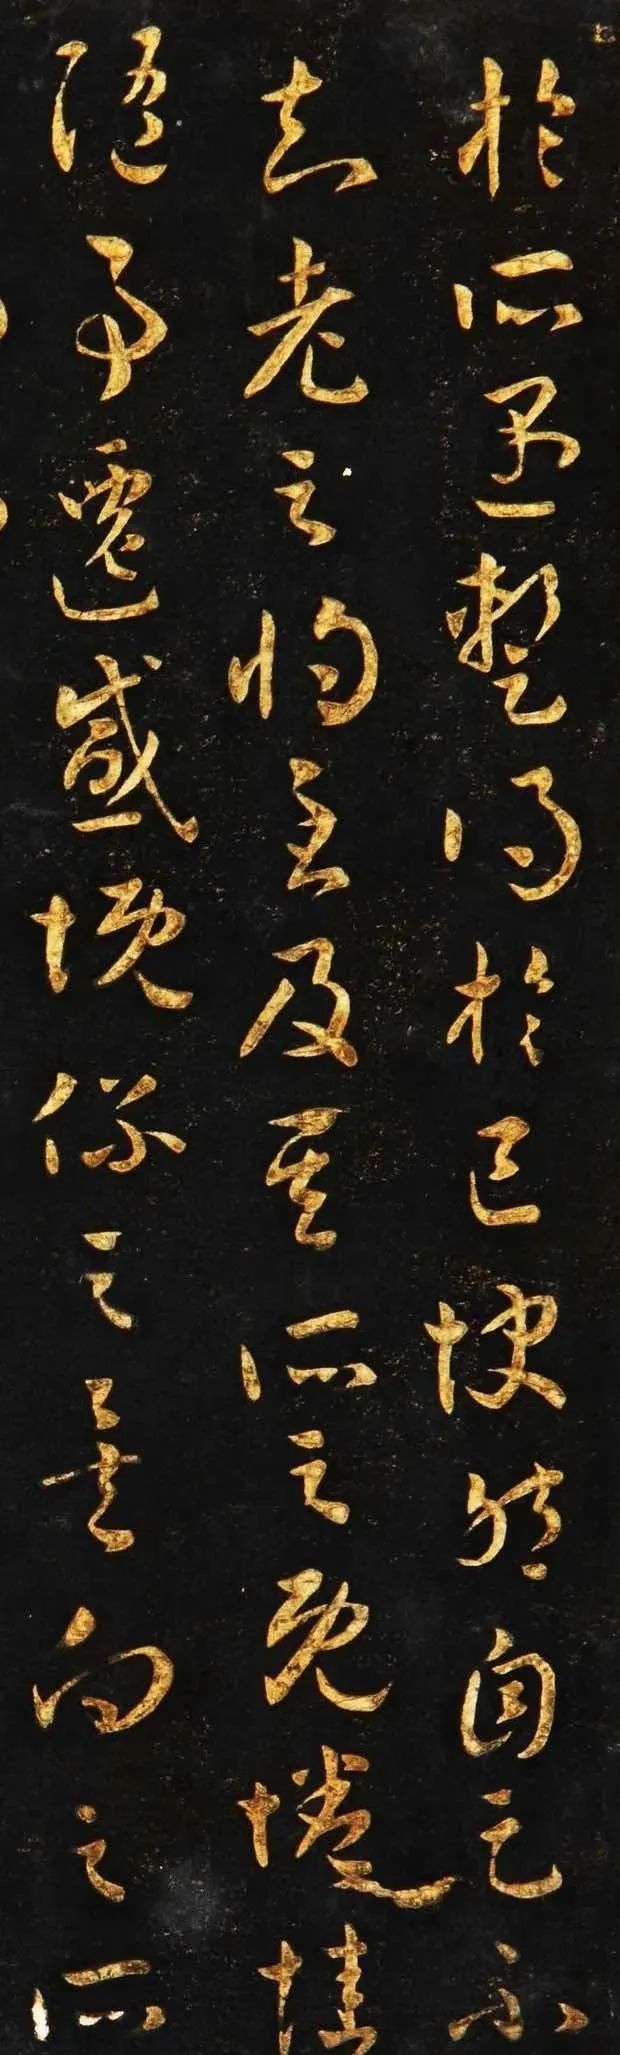 於所遇暫得於己快然自足不
知老之將至及其所之既惓情
隨事遷感慨係之矣向之所